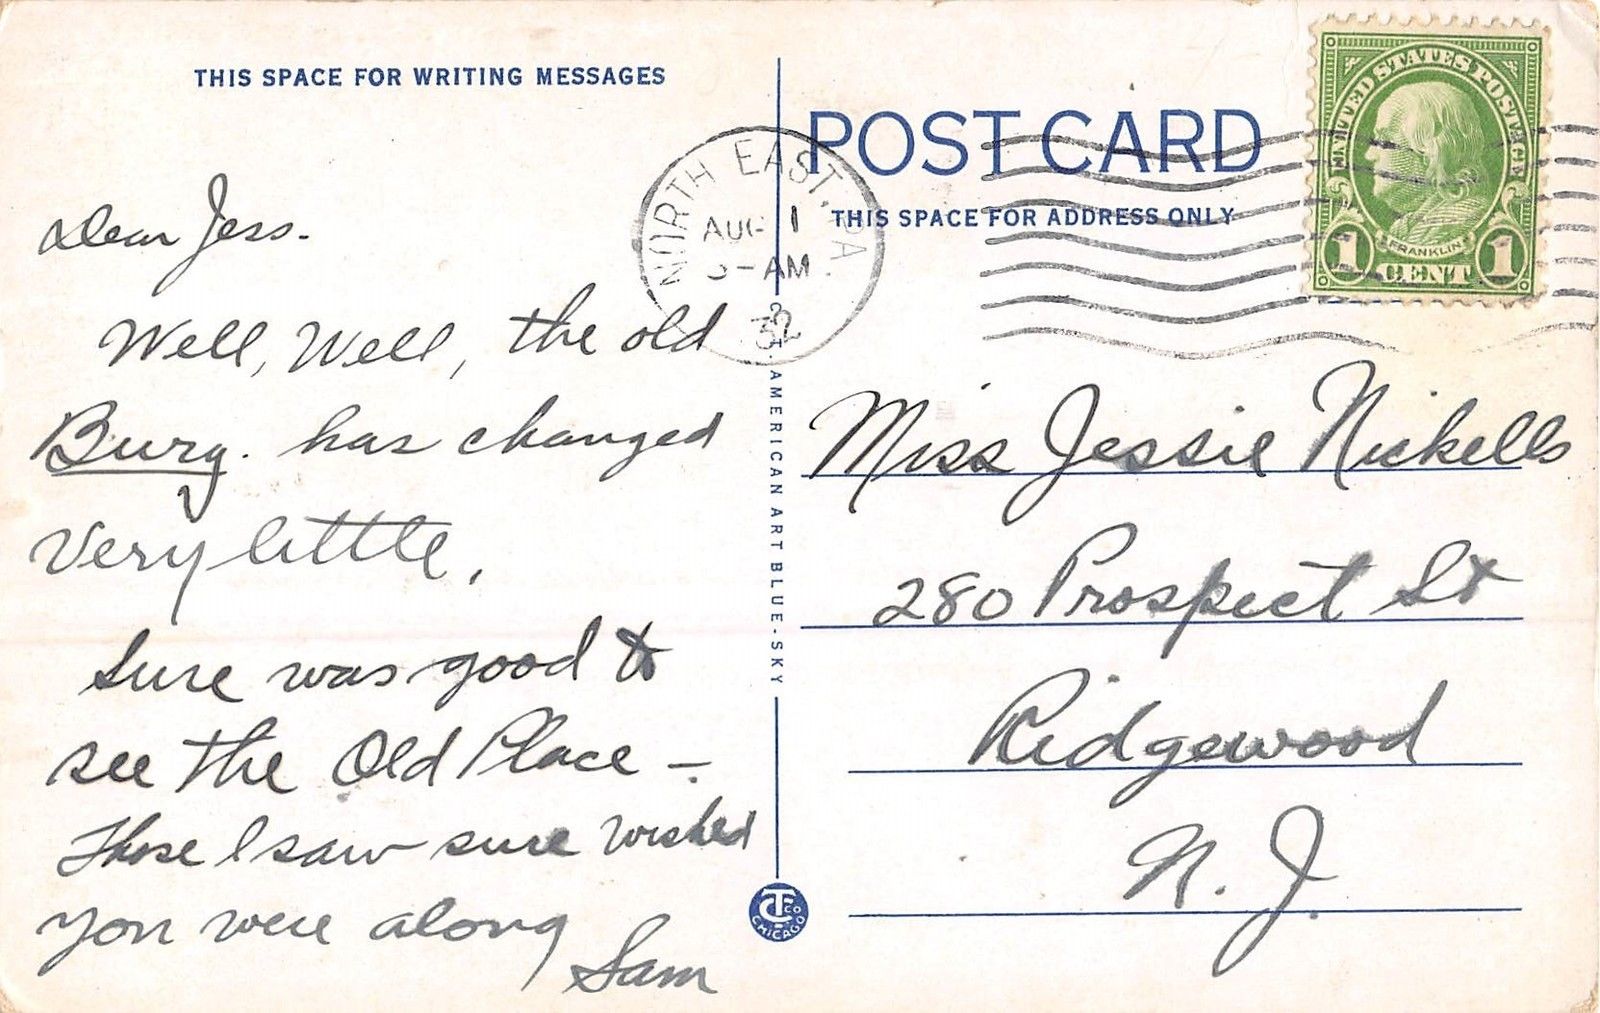 THIS SPACE FOR WRITING MESSAGES
Dear Jess.
Well, Well, the old
Burg. has changed
Very little,
Sure was good to
see the Old Place –
Those I saw sure wished
you were along
Sam
C. T. AMERICAN ART BLUE-SKY
CT CO
CHICAGO
POST CARD
THIS SPACE FOR ADDRESS ONLY
NORTH EAST, PA.
AUG 1
-AM
32
UNITED STATES POSTAGE
FRANKLIN
1 CENT 1
Miss Jessie Nickells
280 Prospect St
Ridgewood
N. J.